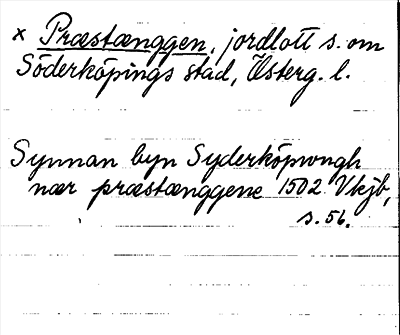 x Præstænggen, jordlott s. om
Söderköpings stad, Österg. l.
Synnan byn Syderköpwngh
nær præstænggene 1502 Vkjb,
s. 56.